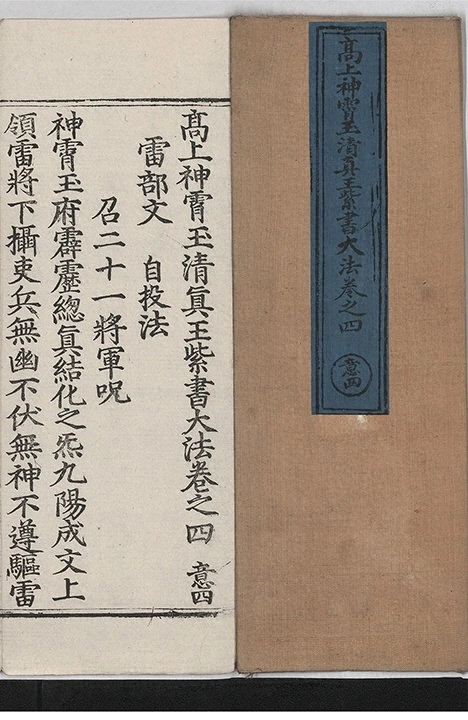 高上神霄玉清真王紫書大法卷之四
意四
高上神霄玉清眞王紫書大法卷之四　意四
雷部文　自投法
召二十一將軍呪
神霄玉府霹靂總眞結化之炁九陽成文上
領雷將下攝吏兵無幽不伏無神不遵驅雷